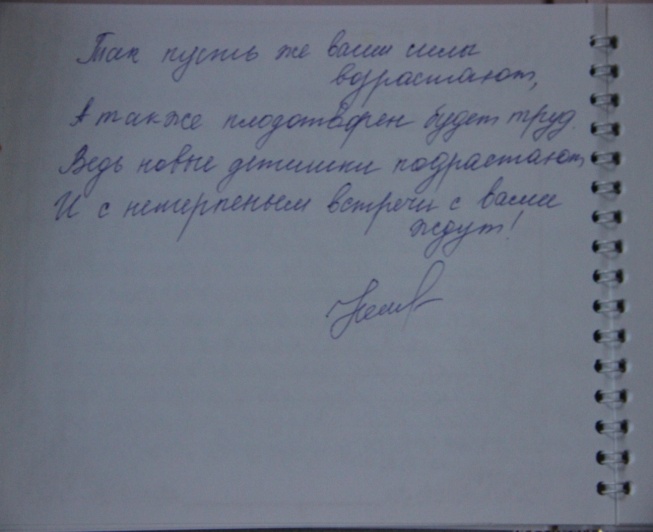 Так пусть же ваши силы
возрастают,
А также плодотворен будет труд.
Ведь новые детишки подрастают,
И с нетерпеньем встречи с вами
ждут!